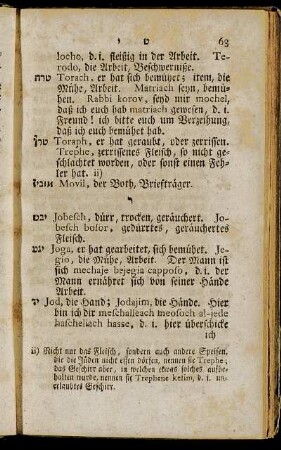 ט י 63
locho, d. i. fleißig in der Arbeit. Te-
rodo, die Arbeit, Beschwerniße.
טרח Torach, er hat sich bemühet; item, die
Mühe, Arbeit. Matriach seyn, bemü-
hen. Rabbi korov, seyd mir mochel,
daß ich euch hab matriach gewesen, d. i.
Freund! ich bitte euch um Verzeihung,
daß ich euch bemühet hab.
טרף Toraph, er hat geraubt, oder zerrissen.
Trephe, zerrissenes Fleisch, so nicht ge-
schlachtet worden, oder sonst einen Feh-
ler hat. ii)
Movil, der Both, Briefträger.
י
יבש Jobesch, dürr, trocken, geräuchert. Jo-
besch bosor, gedürrtes, geräuchertes
Fleisch.
יגע Joga, er hat gearbeitet, sich bemühet. Je-
gio, die Mühe, Arbeit. Der Mann ist
sich mechaje bejegia cappofo, d. i. der
Mann ernähret sich von seiner Hände
Arbeit.
יד Jod, die Hand; Jodajim, die Hände. Hier
bin ich dir meschalleach meosoch al-jede
hascheliach hasse, d. i. hier überschicke
ich
ii) Nicht nur das Fleisch, sondern auch andere Speisen,
die die Jüden nicht essen dörfen, nennen sie Trephe;
das Geschirr aber, in welchen etwas solches aufbe-
halten wurde, nennen sie Trephene kelim, d. i. un-
erlaubtes Geschirr.